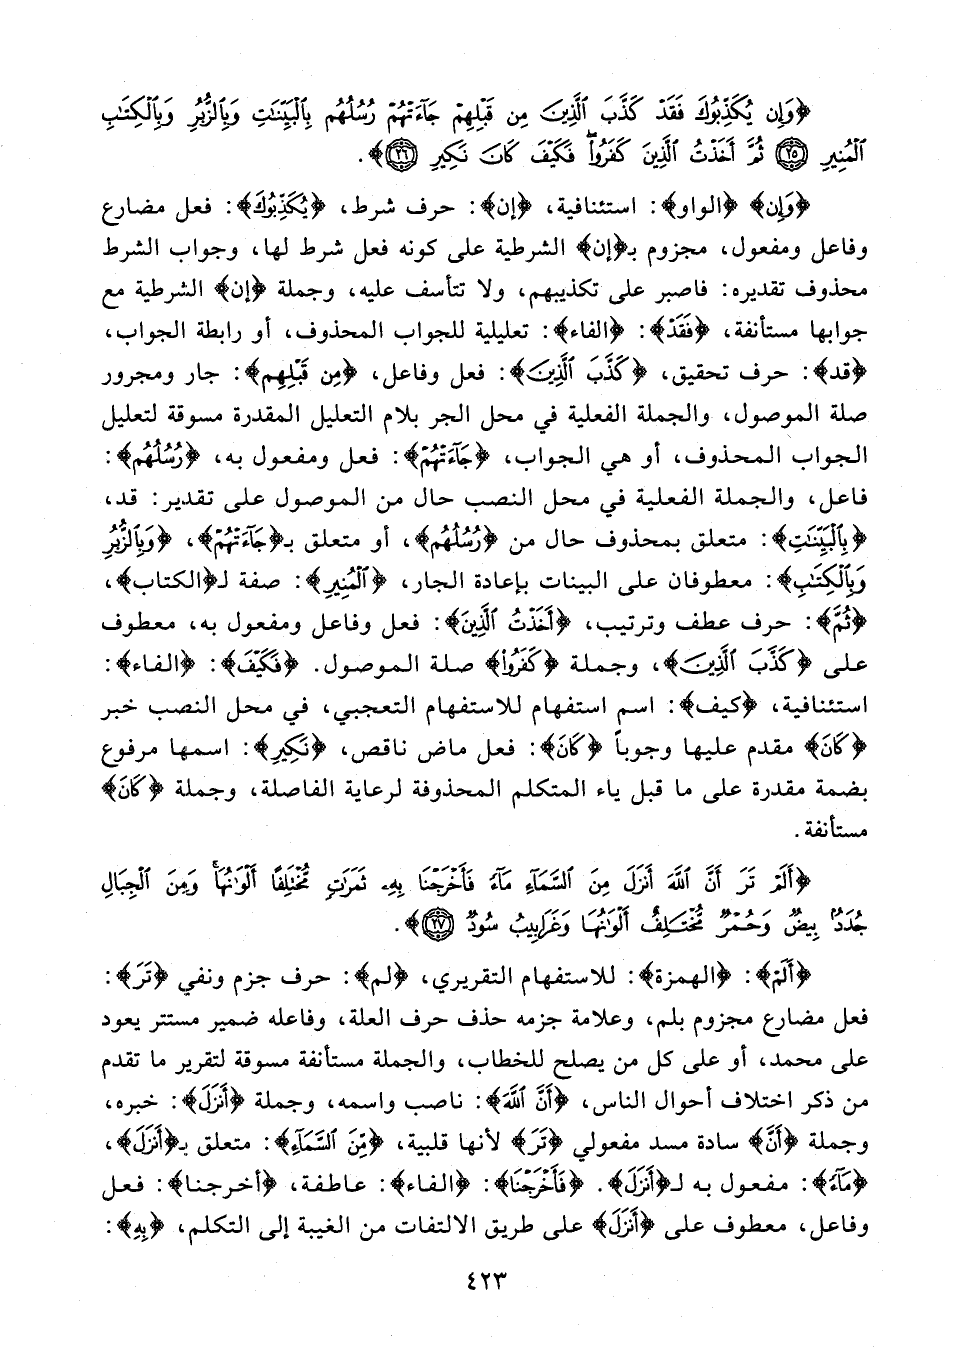 ﴿وَإِن يُكَذِّبُوكَ فَقَدْ كَذَّبَ ٱلَّذِينَ مِن قَبْلِهِمْ جَآءَتْهُمْ رُسُلُهُم بِٱلْبَيِّنَٰتِ وَبِٱلزُّبُرِ وَبِٱلْكِتَٰبِ
ٱلْمُنِيرِ ٢٥ ثُمَّ أَخَذْتُ ٱلَّذِينَ كَفَرُوا۟ ۖ فَكَيْفَ كَانَ نَكِيرِ ٢٦﴾.
﴿وَإِن﴾ ﴿الواو﴾: استئنافية، ﴿إن﴾: حرف شرط، ﴿يُكَذِّبُوكَ﴾: فعل مضارع
وفاعل ومفعول، مجزوم بـ﴿إن﴾ الشرطية على كونه فعل شرط لها، وجواب الشرط
محذوف تقديره: فاصبر على تكذيبهم، ولا تتأسف عليه، وجملة ﴿إن﴾ الشرطية مع
جوابها مستأنفة، ﴿فَقَدْ﴾: ﴿الفاء﴾: تعليلية للجواب المحذوف، أو رابطة الجواب،
﴿قد﴾: حرف تحقيق، ﴿كَذَّبَ ٱلَّذِينَ﴾: فعل وفاعل، ﴿مِن قَبْلِهِم﴾: جار ومجرور
صلة الموصول، والجملة الفعلية في محل الجر بلام التعليل المقدرة مسوقة لتعليل
الجواب المحذوف، أو هي الجواب، ﴿جَآءَتْهُمْ﴾: فعل ومفعول به، ﴿رُسُلُهُم﴾:
فاعل، والجملة الفعلية في محل النصب حال من الموصول على تقدير: قد،
﴿بِٱلْبَيِّنَٰتِ﴾: متعلق بمحذوف حال من ﴿رُسُلُهُم﴾، أو متعلق بـ﴿جَآءَتْهُمْ﴾، ﴿وَبِٱلزُّبُرِ
وَبِٱلْكِتَٰبِ﴾: معطوفان على البينات بإعادة الجار، ﴿ٱلْمُنِيرِ﴾: صفة لـ﴿الكتاب﴾،
﴿ثُمَّ﴾: حرف عطف وترتيب، ﴿أَخَذْتُ ٱلَّذِينَ﴾: فعل وفاعل ومفعول به، معطوف
على ﴿كَذَّبَ ٱلَّذِينَ﴾، وجملة ﴿كَفَرُوا۟﴾ صلة الموصول. ﴿فَكَيْفَ﴾: ﴿الفاء﴾:
استئنافية، ﴿كيف﴾: اسم استفهام للاستفهام التعجبي، في محل النصب خبر
﴿كَانَ﴾ مقدم عليها وجوباً ﴿كَانَ﴾: فعل ماض ناقص، ﴿نَكِيرِ﴾: اسمها مرفوع
بضمة مقدرة على ما قبل ياء المتكلم المحذوفة لرعاية الفاصلة، وجملة ﴿كَانَ﴾
مستأنفة.
﴿أَلَمْ تَرَ أَنَّ ٱللَّهَ أَنزَلَ مِنَ ٱلسَّمَآءِ مَآءً فَأَخْرَجْنَا بِهِۦ ثَمَرَٰتٍ مُّخْتَلِفًا أَلْوَٰنُهَا ۚ وَمِنَ ٱلْجِبَالِ
جُدَدٌۢ بِيضٌ وَحُمْرٌ مُّخْتَلِفٌ أَلْوَٰنُهَا وَغَرَابِيبُ سُودٌ ٢٧﴾.
﴿أَلَمْ﴾: ﴿الهمزة﴾: للاستفهام التقريري، ﴿لم﴾: حرف جزم ونفي ﴿تَرَ﴾:
فعل مضارع مجزوم بلم، وعلامة جزمه حذف حرف العلة، وفاعله ضمير مستتر يعود
على محمد، أو على كل من يصلح للخطاب، والجملة مستأنفة مسوقة لتقرير ما تقدم
من ذكر اختلاف أحوال الناس، ﴿أَنَّ ٱللَّهَ﴾: ناصب واسمه، وجملة ﴿أَنزَلَ﴾: خبره،
وجملة ﴿أَنَّ﴾ سادة مسد مفعولي ﴿تَرَ﴾ لأنها قلبية، ﴿مِّنَ ٱلسَّمَآءِ﴾: متعلق بـ﴿أَنزَلَ﴾،
﴿مَآءً﴾: مفعول به لـ﴿أَنزَلَ﴾. ﴿فَأَخْرَجْنَا﴾: ﴿الفاء﴾: عاطفة، ﴿أخرجنا﴾: فعل
وفاعل، معطوف على ﴿أَنزَلَ﴾ على طريق الالتفات من الغيبة إلى التكلم، ﴿بِهِ﴾:
٤٢٣